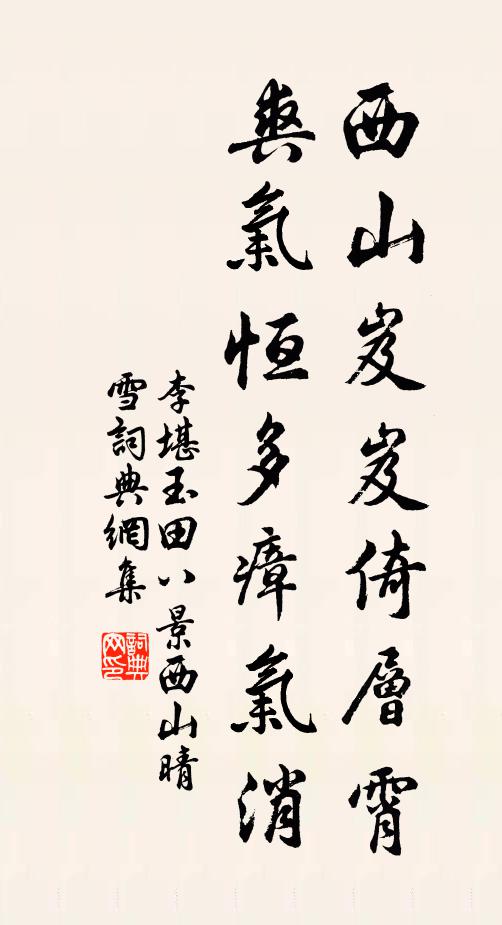 西山岌岌倚層霄
爽氣恒多瘴氣消
李堪玉田八景西山晴
雪詞典網集
詞典
网印